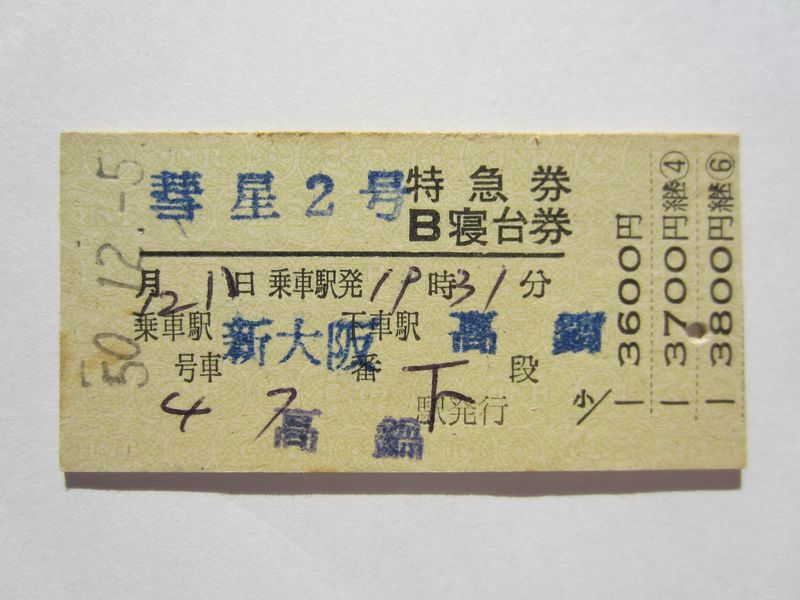 50.12.-5
彗星2号
特急券
B寝台券
12月11日 乗車駅発19時31分
乗車駅 新大阪 下車駅 高鍋
4号車 7番 下段
高鍋駅発行
小/
3600円
3700円継④
3800円継⑥